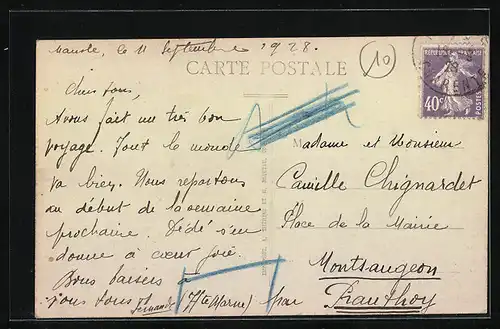 Mansle, le 11 Septembre 1928.
CARTE POSTALE
10
RÉPUBLIQUE FRANÇAISE
40c
POSTES
Chers tous,
Avons fait un très bon
voyage. Tout le monde
va bien. Nous repartons
au début de la semaine
prochaine. Dédé s'en
donne à cœur joie.
Bons baisers à
vous tous
Fernande
Madame et Monsieur
Camille Chignardet
Place de la Mairie
Montsaugeon
par Prauthoy
(Hte Marne)